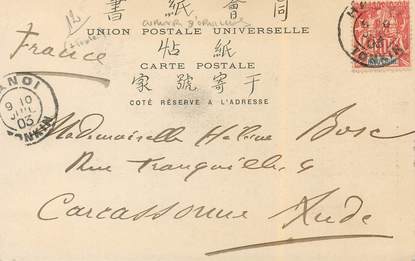 書紙會同
UNION POSTALE UNIVERSELLE
帖紙
CARTE POSTALE
家號寄于
COTÉ RÉSERVÉ A L'ADRESSE
France
HANOI
9 10
JUIL
03
TONKIN
03
TONKIN
Mademoiselle Hélène Bosc
Rue Tranquille, 9
Carcassonne
Aude